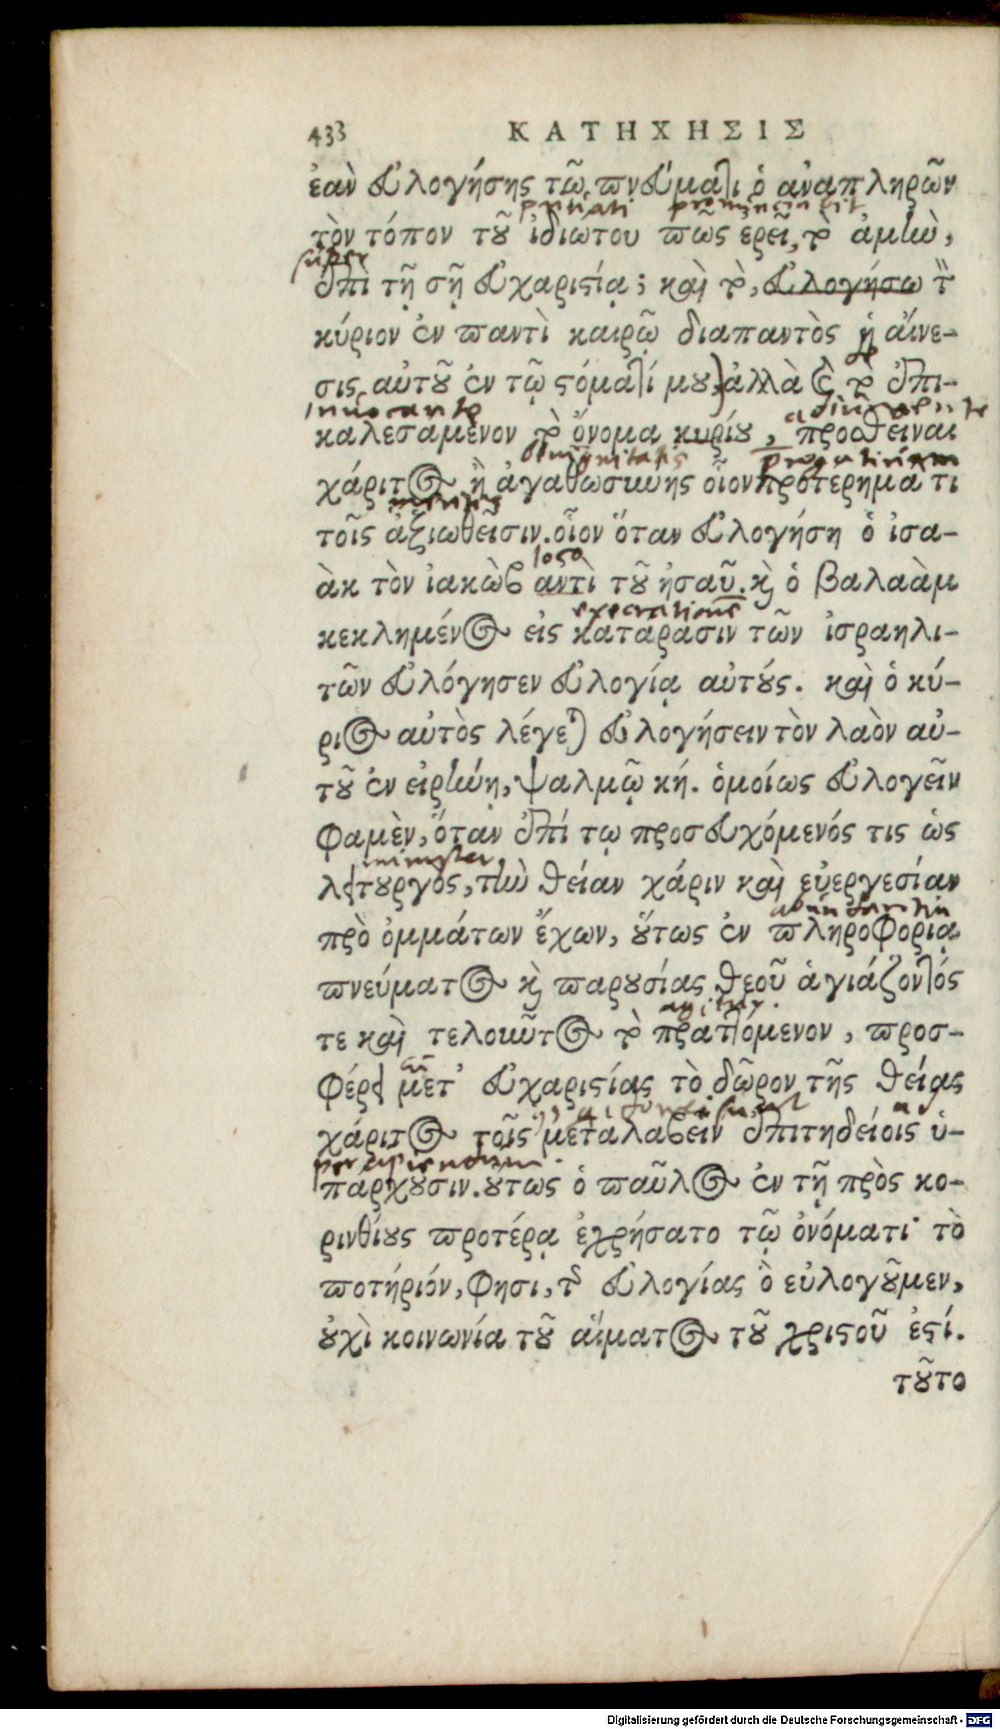 433 ΚΑΤΗΧΗΣΙΣ
ἐὰν εὐλογήσης τῷ πνεύματι ὁ ἀναπληρῶν
privati pronunciabit
τὸν τόπον τοῦ ἰδιώτου πῶς ἐρεῖ, τὸ ἀμὴν,
super
ἐπὶ τῇ σῇ εὐχαριστίᾳ; καὶ τὸ, εὐλογήσω τὸν
κύριον ἐν παντὶ καιρῷ διαπαντὸς ἡ αἴνε-
σις αὐτοῦ ἐν τῷ στόματί μου, ἀλλὰ καὶ τὸ ἐπι-
invocante
καλεσαμενον τὸ ὄνομα κυρίου, προσθεῖναι
benignitatis
χάριτος ἢ ἀγαθωσύνης οἷον προτέρημα τι
τοῖς ἀξιωθεῖσιν. οἷον ὅταν εὐλογήση ὁ ἰσα-
loco
ὰκ τὸν ἰακὼβ αντὶ τοῦ ἠσαῦ. καὶ ὁ βαλαὰμ
execrationē
κεκλημένος εἰς καταρασιν τῶν ἰσραηλι-
τῶν εὐλόγησεν εὐλογίᾳ αὐτούς. καὶ ὁ κύ-
ριος αὐτὸς λέγεται εὐλογήσειν τὸν λαὸν αὐ-
τοῦ ἐν εἰρήνῃ, ψαλμῷ κή. ὁμοίως εὐλογεῖν
φαμὲν, ὅταν ἐπί τῳ προσευχόμενός τις ὡς
minister
λειτουργός, τὴν θείαν χάριν καὶ εὐεργεσίαν
abundantia
πρὸ ὀμμάτων ἔχων, οὕτως ἐν πληροφορίᾳ
πνεύματος καὶ παρουσίας θεοῦ ἁγιάζοντός
agitur.
τε καὶ τελοιῶτος τὸ πραττόμενον, προσ-
φέρει μετ' εὐχαριστίας τὸ δῶρον τῆς θείας
ad
χάριτος τοῖς μεταλαβεῖν ἐπιτηδείοις ὑ-
percipiendum.
πάρχουσιν. οὕτως ὁ παῦλος ἐν τῇ πρὸς κο-
ρινθίους προτέρᾳ ἐχρήσατο τῷ ὀνόματι· τὸ
ποτήριόν, φησι, τῆς εὐλογίας ὃ εὐλογοῦμεν,
οὐχὶ κοινωνία τοῦ αἵματος τοῦ χριστοῦ ἐστί.
τοῦτο
Digitalisierung gefördert durch die Deutsche Forschungsgemeinschaft - DFG